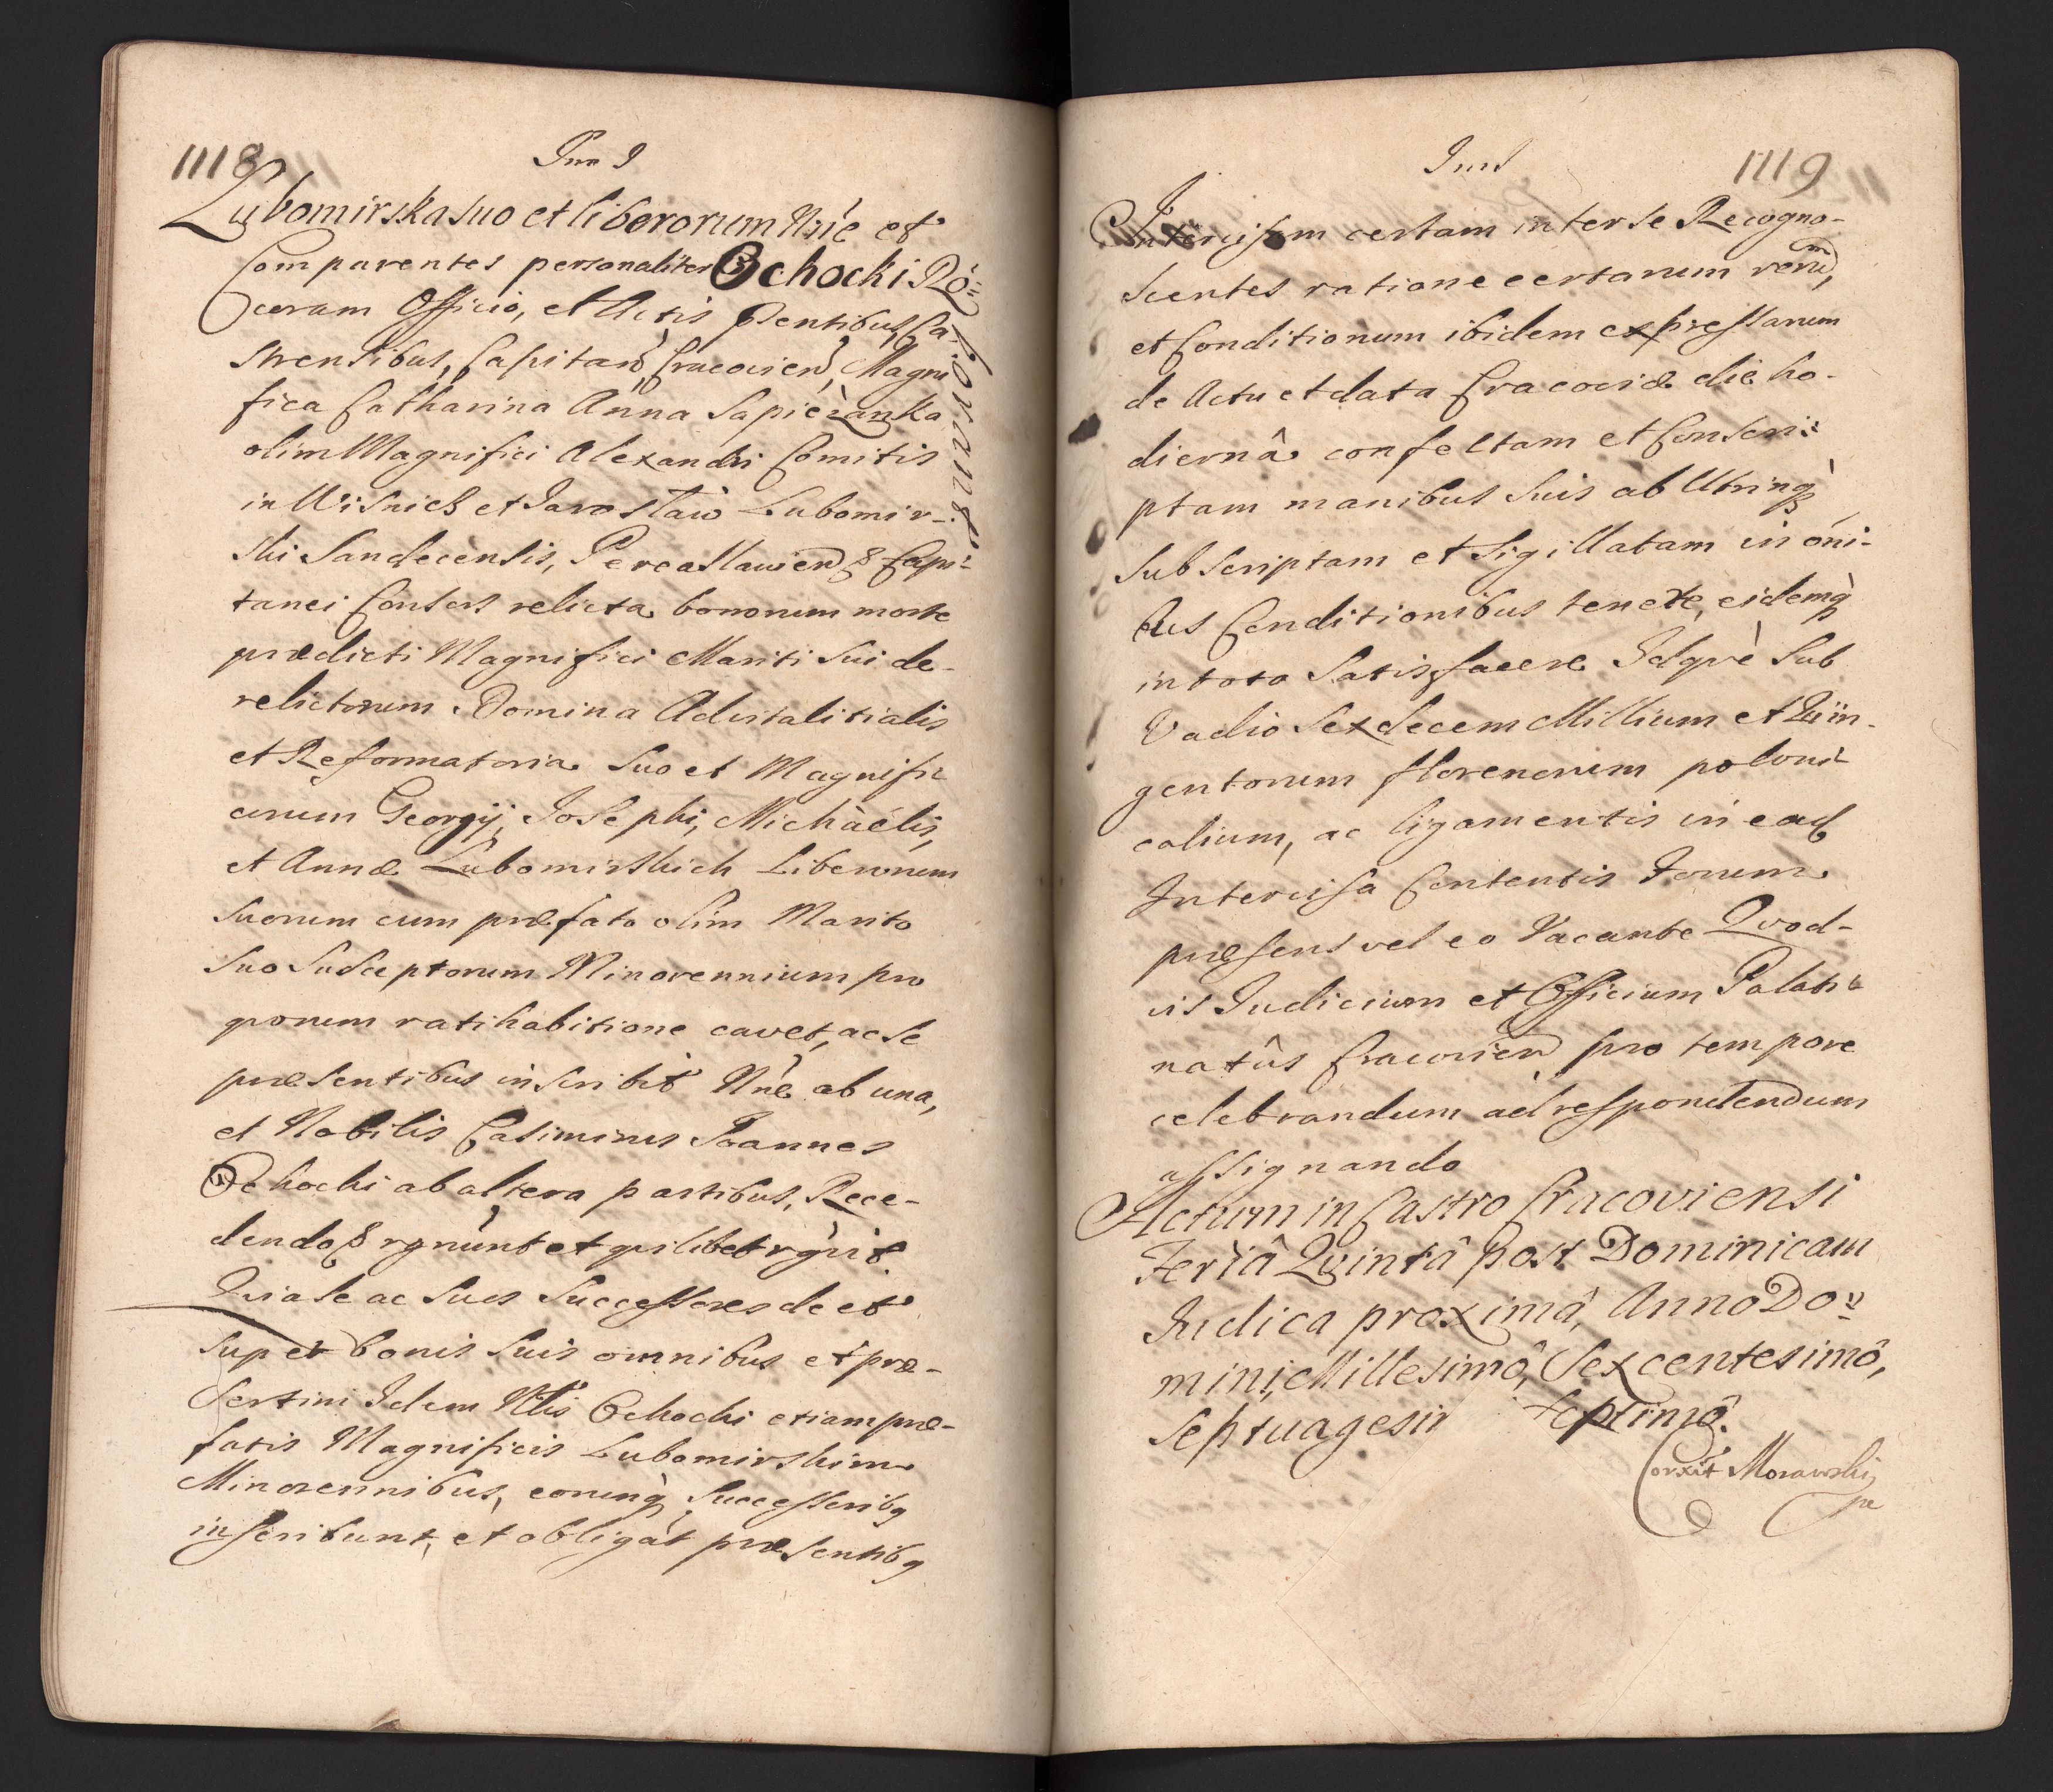 1118
Lubomirska suo et liberorum Nñe et
Comparentes personaliter Ochocki Ro=
borant
coram Officio, et Actis Pntibus, Ca-
strensibus, Capitan, Cracovien, Magni
fica Catharina Anna Sapieżanka
olim Magnifici Alexandri Comitis
in Wisnicz et Jarosław Lubomir-
ski Sandecensis, Pereasławien & Capi-
tanei Consors relicta bonorum morte
prædicti Magnifici Mariti sui de-
relictorum Domina Advitalitialis
et Reformatoria suo et Magnifi
corum Georgij, Josephi, Michaëlis,
et Annæ Lubomirskich Liberorum
suorum cum præfato olim Marito
suo susceptorum Minorennium pro
quorum ratihabitione cavet, ac se
præsentibus inscribit Nñe ab una,
et Nobilis Casimirus Joannes
Ochocki ab altera partibus, Rece-
dendo & rgnunt et quilibet rgũit
Quia se ac suos Successores de et
super bonis suis omnibus et præ-
sertim Idem Nblis Ochocki etiam præ-
fatis Magnificis Lubomirskim
Minorennibus, eorumq̀ Successoribq
inscribunt, et obligãt præsentibq
1119
Intercisam certam inter se Recogno-
scentes ratione certarum rerũ,
et Conditionum ibidem expressarum
de Actu et data Cracoviæ die ho-
diernâ confectam et Conscri-
ptam manibus suis ab Utrinq̀
subscriptam et sigillatam in õni-
bus Conditionibus tenere, eidemq̀
in toto satisfacere Idque sub
Vadio Sexdecem Millium et Quin-
gentorum florenorum poloni-
calium, ac ligamentis in ead
Intercisa Contentis Forum
præsens vel eo Vacante Quod-
vis Judicium et Officium Palati-
natûs Cracovien pro tempore
celebrandum ad respondendum
assignando
Actum in Castro Cracoviensi
Feriâ Quintâ post Dominicam
Judica proximâ, Anno Do=
mini, Millesimô, Sexcentesimô,
Septuagesi septimô.
Correxit Morawski